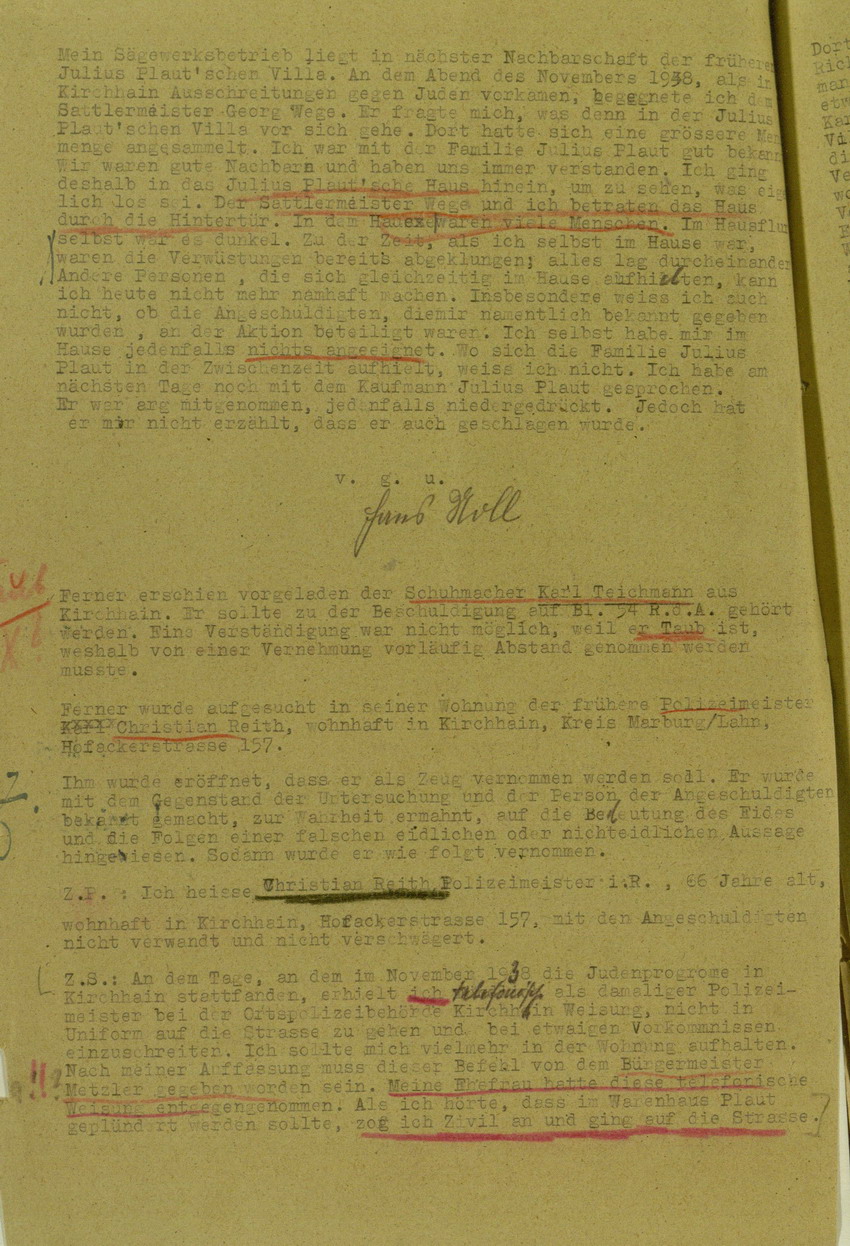 Mein Sägewerksbetrieb liegt in nächster Nachbarschaft der früheren
Julius Plaut'schen Villa. An dem Abend des Novembers 1938, als in
Kirchhain Ausschreitungen gegen Juden vorkamen, begegnete ich dem
Sattlermeister Georg Wege. Er fragte mich, was denn in der Julius
Plaut'schen Villa vor sich gehe. Dort hatte sich eine grössere Men
menge angesammelt. Ich war mit der Familie Julius Plaut gut bekann
Wir waren gute Nachbarn und haben uns immer verstanden. Ich ging
deshalb in das Julius Plaut'sche Haus hinein, um zu sehen, was eig
lich los sei. Der Sattlermeister Wege und ich betraten das Haus
durch die Hintertür. In dem Hause waren viele Menschen. Im Hausflur
selbst war es dunkel. Zu der Zeit, als ich selbst im Hause war,
waren die Verwüstungen bereits abgeklungen; alles lag durcheinander
Andere Personen , die sich gleichzeitig im Hause aufhielten, kann
ich heute nicht mehr namhaft machen. Insbesondere weiss ich auch
nicht, ob die Angeschuldigten, diemir namentlich bekannt gegeben
wurden , an der Aktion beteiligt waren. Ich selbst habe mir im
Hause jedenfalls nichts angeeignet. Wo sich die Familie Julius
Plaut in der Zwischenzeit aufhielt, weiss ich nicht. Ich habe am
nächsten Tage noch mit dem Kaufmann Julius Plaut gesprochen.
Er war arg mitgenommen, jedenfalls niedergedrückt. Jedoch hat
er mir nicht erzählt, dass er auch geschlagen wurde.
v. g. u.
Hans Noll
Ferner erschien vorgeladen der Schuhmacher Karl Teichmann aus
Kirchhain. Er sollte zu der Beschuldigung auf Bl. 54 R.d.A. gehört
werden. Eine Verständigung war nicht möglich, weil er Taub ist,
weshalb von einer Vernehmung vorläufig Abstand genommen werden
musste.
Ferner wurde aufgesucht in seiner Wohnung der frühere Polizeimeister
Karl Christian Reith, wohnhaft in Kirchhain, Kreis Marburg/Lahn,
Hofackerstrasse 157.
Ihm wurde eröffnet, dass er als Zeug vernommen werden soll. Er wurde
mit dem Gegenstand der Untersuchung und der Person der Angeschuldigten
bekannt gemacht, zur Wahrheit ermahnt, auf die Bedeutung des Eides
und die Folgen einer falschen eidlichen oder nichteidlichen Aussage
hingewiesen. Sodann wurde er wie folgt vernommen.
Z.P. : Ich heisse Christian Reith Polizeimeister i.R. , 66 Jahre alt,
wohnhaft in Kirchhain, Hofackerstrasse 157, mit den Angeschuldigten
nicht verwandt und nicht verschwägert.
Z.S.: An dem Tage, an dem im November 1938 die Judenprogrome in
Kirchhain stattfanden, erhielt ich telefonisch als damaliger Polizei-
meister bei der Ortspolizeibehörde Kirchhain Weisung, nicht in
Uniform auf die Strasse zu gehen und bei etwaigen Vorkommnissen
einzuschreiten. Ich sollte mich vielmehr in der Wohnung aufhalten.
Nach meiner Auffassung muss dieser Befehl von dem Bürgermeister
Metzler gegeben worden sein. Meine Ehefrau hatte diese telefonische
Weisung entgegengenommen. Als ich hörte, dass im Warenhaus Plaut
geplündert werden sollte, zog ich Zivil an und ging auf die Strasse.